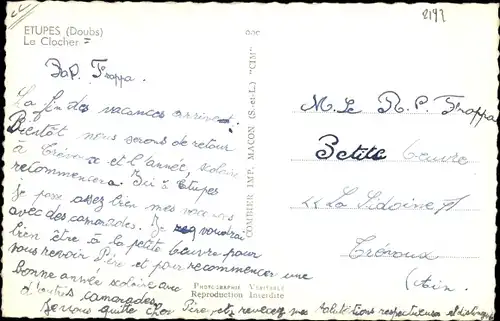 2192
ETUPES (Doubs)
Le Clocher =
R.P. Frappa.
La fin des vacances arrivent.
Bientôt nous serons de retour
à Trévoux et l'année scolaire
recommencera. Ici à Etupes
Je passe assez bien mes vacances
avec des camarades. Je voudrai
bien être à la petite œuvre pour
vous revoir Père et pour recommencer une
bonne année scolaire avec
d'autres camarades.
Je vous quitte cher Père, et recevez mes salutations respectueuses et distinguées
COMBIER IMP. MACON (S.-et-L.) "CIM"
PHOTOGRAPHIE VÉRITABLE
Reproduction Interdite
M. Le R. P. Frappa
Petite œuvre
La Sidoine
Trévoux
(Ain)